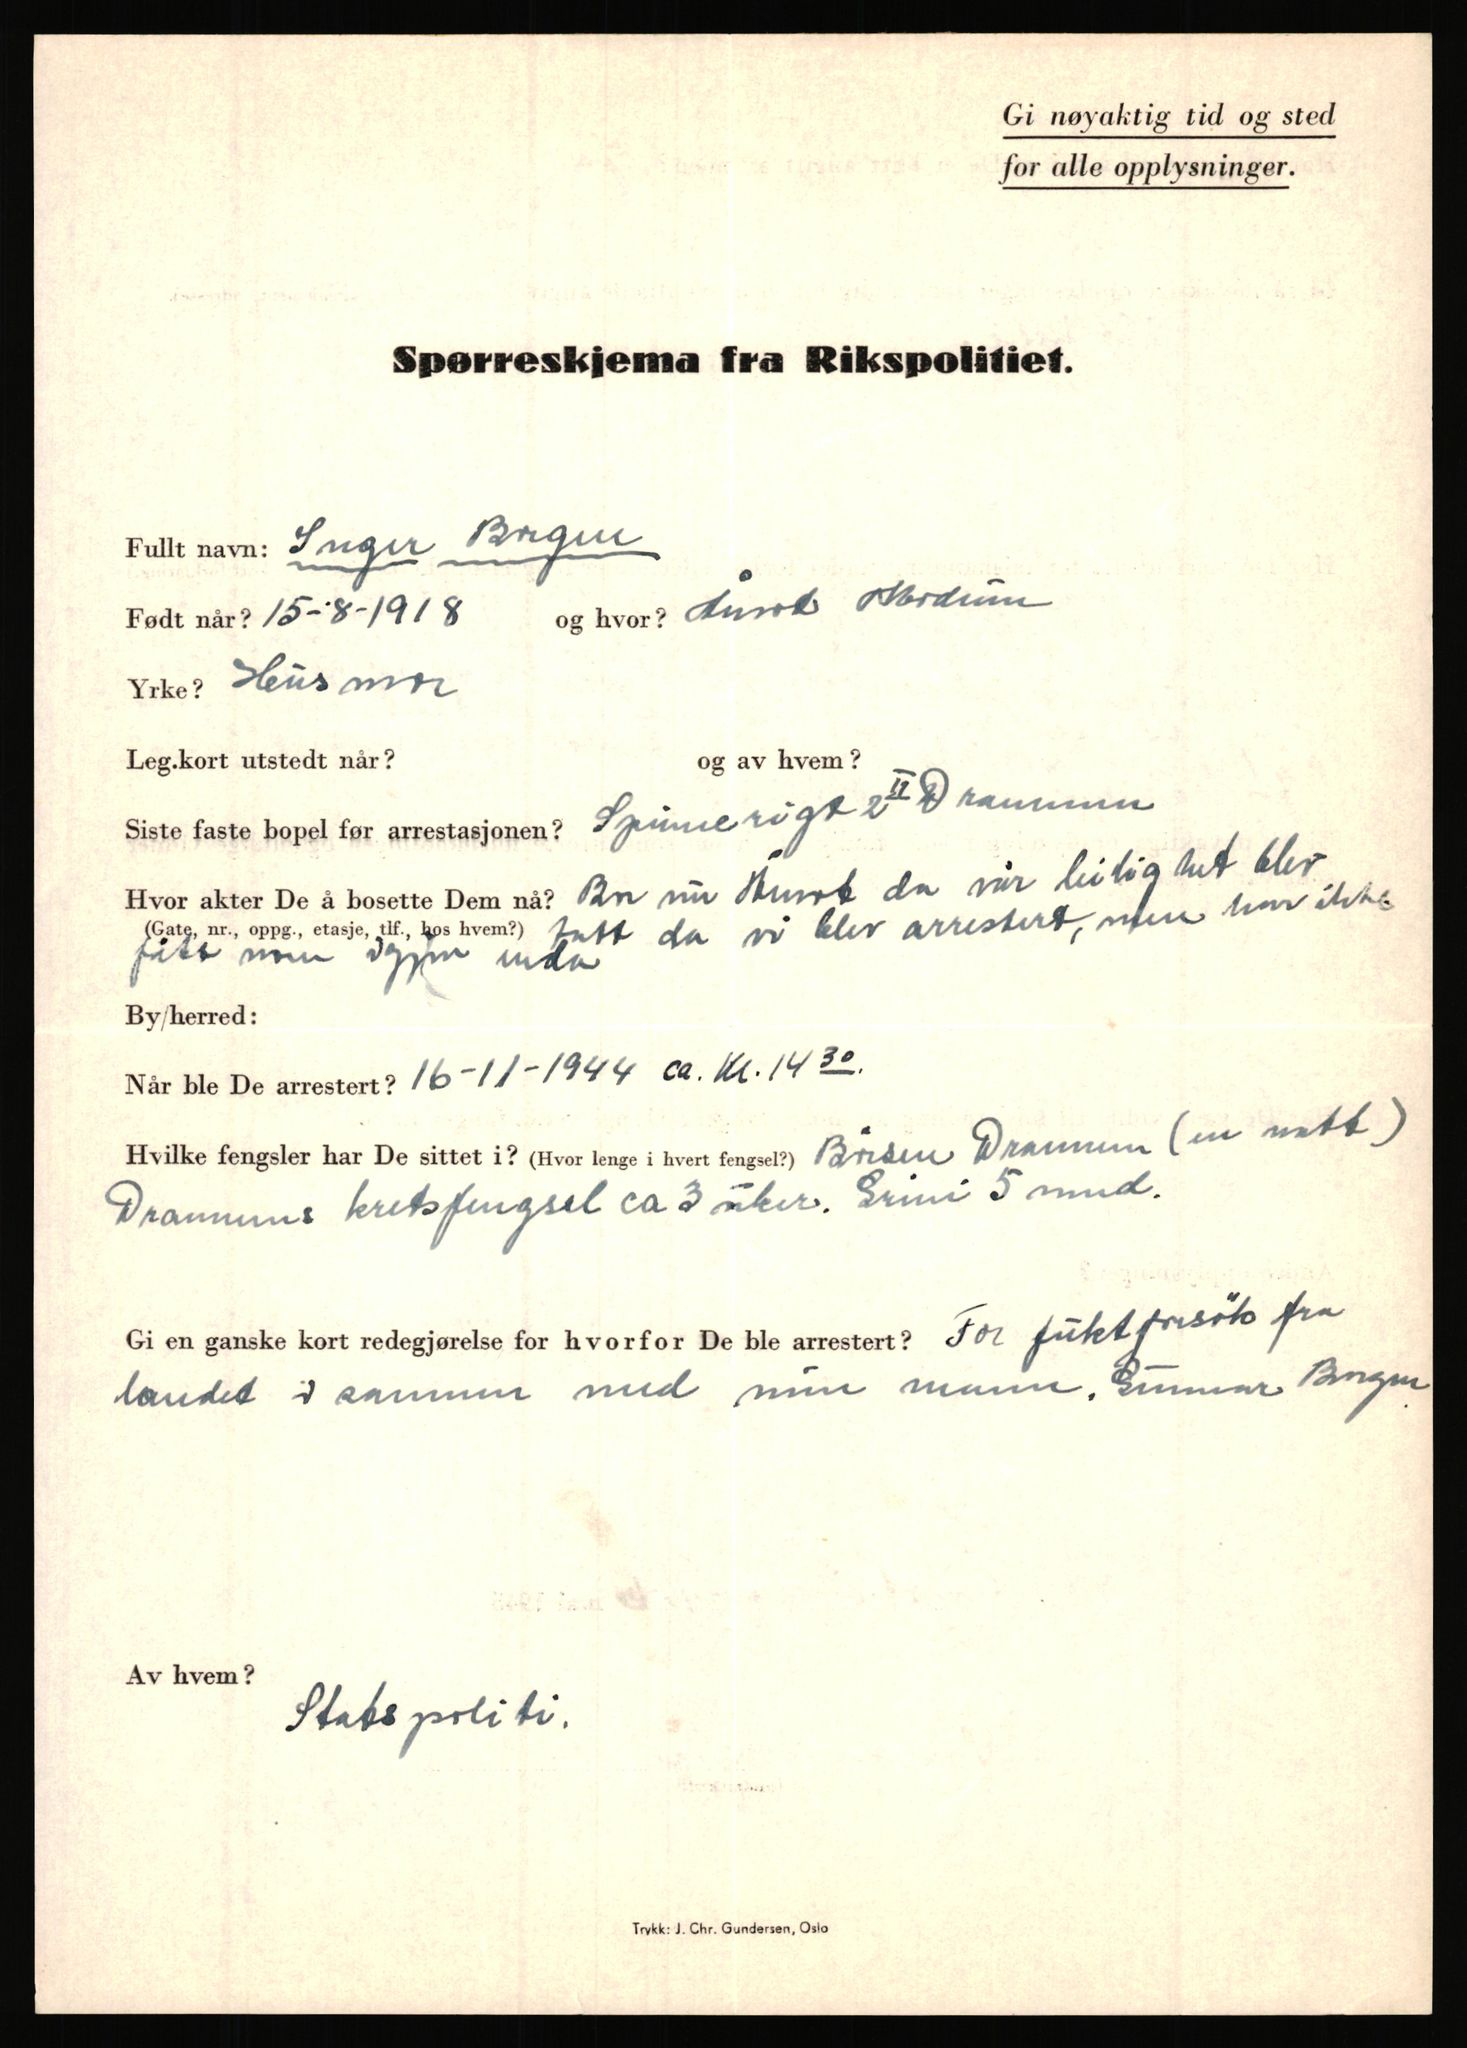 Gi nøyaktig tid og sted
for alle opplysninger.
Spørreskjema fra Rikspolitiet.
Fullt navn: Inger Borgen
Født når? 15-8-1918 og hvor? Åmot Modum
Yrke? Husmor
Leg.kort utstedt når? og av hvem?
Siste faste bopel før arrestasjonen? Spinnerigt 2 II Drammen
Hvor akter De å bosette Dem nå? Bor nu Åmot da vår leilighet blev
(Gate, nr., oppg., etasje, tlf., hos hvem?) tatt da vi blev arrestert, men har ikke
fått noen igjen enda
By/herred:
Når ble De arrestert? 16-11-1944 ca. Kl. 14 30.
Hvilke fengsler har De sittet i? (Hvor lenge i hvert fengsel?) Börsen Drammen (en natt)
Drammens kretsfengsel ca 3 uker. Grini 5 mnd.
Gi en ganske kort redegjørelse for hvorfor De ble arrestert? For fluktforsök fra
landet sammen med min mann. Gunnar Borgen.
Av hvem?
Statspoliti.
Trykk: J. Chr. Gundersen, Oslo